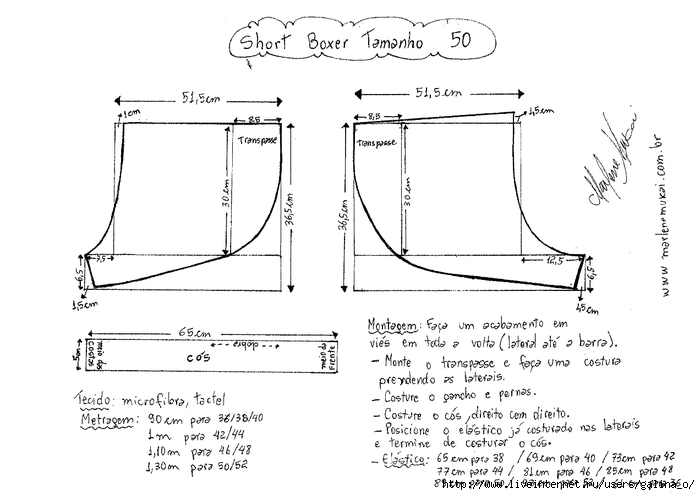 Short Boxer Tamanho 50
51,5cm
1cm
8,5
Transpasse
30cm
36,5cm
7,5
6,5
1,5cm
51,5cm
8,5
1,5cm
Transpasse
36,5cm
30cm
12,5
6,5
1,5cm
www.marlenemukai.com.br
65cm
5cm
meio das Costas
cós
dobra
meio da Frente
Tecido: microfibra, tactel
Metragem: 90cm para 36/38/40
1m para 42/44
1,10m para 46/48
1,30m para 50/52
Montagem: Faça um acabamento em
viés em toda a volta (lateral até a barra).
- Monte o transpasse e faça uma costura
prendendo as laterais.
- Costure o gancho e pernas.
- Costure o cós, direito com direito.
- Posicione o elástico já costurado nas laterais
e termine de costurar o cós.
- Elástico: 65cm para 38 / 69cm para 40 / 73cm para 42
77cm para 44 / 81cm para 46 / 85cm para 48
http://www.liveinternet.ru/users/garbnejo/